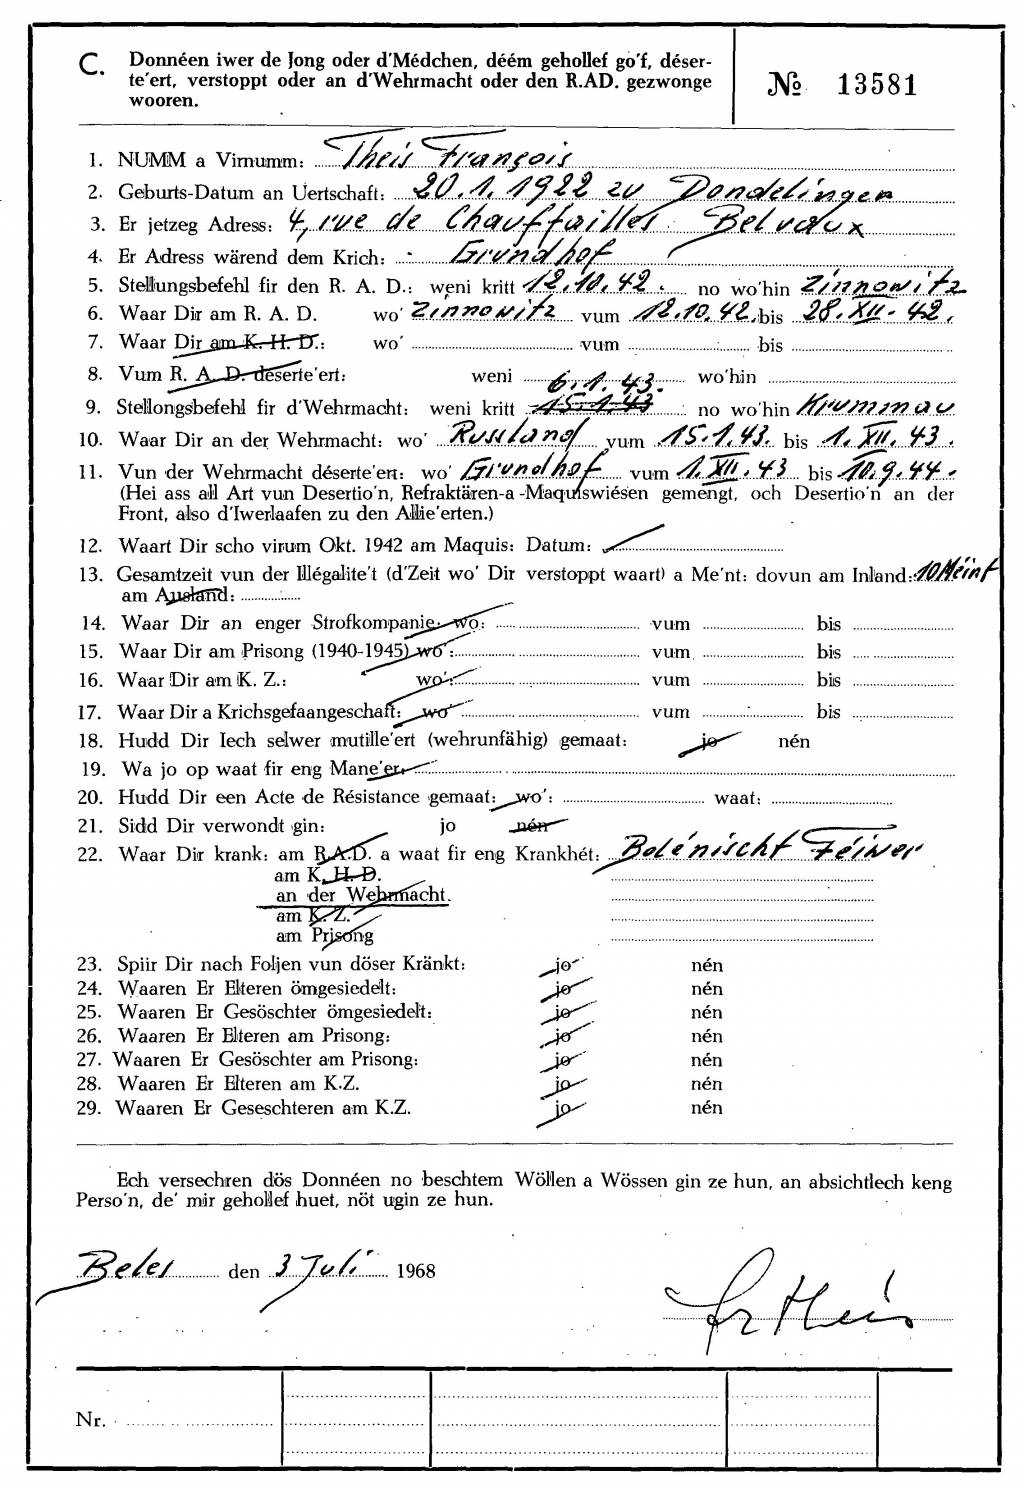 C. Donnéen iwer de Jong oder d'Médchen, déém gehollef go'f, déser-
te'ert, verstoppt oder an d'Wehrmacht oder den R.AD. gezwonge
wooren.
№ 13581
1. NUMM a Virnumm: Theis François
2. Geburts-Datum an Uertschaft: 20.1.1922 zu Dondelingen
3. Er jetzeg Adress: 4, rue de Chauffailles Belvaux
4. Er Adress wärend dem Krich: Grundhof
5. Stellungsbefehl fir den R. A. D.: weni kritt 12.10.42. no wo'hin Zinnowitz
6. Waar Dir am R. A. D. wo' Zinnowitz vum 12.10.42. bis 28.XII.42.
7. Waar Dir am K. H. D.: wo' vum bis
8. Vum R. A. D. deserte'ert: weni wo'hin
6.1.43.
9. Stellongsbefehl fir d'Wehrmacht: weni kritt 15.1.43 no wo'hin Krummau
10. Waar Dir an der Wehrmacht: wo' Russland vum 15.1.43. bis 1.XII.43.
11. Vun der Wehrmacht déserte'ert: wo' Grundhof vum 1.XII.43 bis 10.9.44.
(Hei ass all Art vun Desertio'n, Refraktären-a-Maquiswiésen gemengt, och Desertio'n an der
Front, also d'Iwerlaafen zu den Allie'erten.)
12. Waart Dir scho virum Okt. 1942 am Maquis: Datum:
13. Gesamtzeit vun der Illégalite't (d'Zeit wo' Dir verstoppt waart) a Me'nt: dovun am Inland: 10 Méint
am Ausland:
14. Waar Dir an enger Strofkompanie: wo: vum bis
15. Waar Dir am Prisong (1940-1945) wo': vum bis
16. Waar Dir am K. Z.: wo': vum bis
17. Waar Dir a Krichsgefaangeschaft: wo' vum bis
18. Hudd Dir Iech selwer mutille'ert (wehrunfähig) gemaat: jo nén
19. Wa jo op waat fir eng Mane'er:
20. Hudd Dir een Acte de Résistance gemaat: wo': waat:
21. Sidd Dir verwondt gin: jo nén
22. Waar Dir krank: am R.A.D. a waat fir eng Krankhét: Bolénischt Féiwer
am K. H. D.
an der Wehrmacht.
am K. Z.
am Prisong
23. Spiir Dir nach Foljen vun döser Kränkt: jo nén
24. Waaren Er Elteren ömgesiedelt: jo nén
25. Waaren Er Gesöschter ömgesiedelt: jo nén
26. Waaren Er Elteren am Prisong: jo nén
27. Waaren Er Gesöschter am Prisong: jo nén
28. Waaren Er Elteren am K.Z. jo nén
29. Waaren Er Geseschteren am K.Z. jo nén
Ech versechren dös Donnéen no beschtem Wöllen a Wössen gin ze hun, an absichtlech keng
Perso'n, de' mir gehollef huet, nöt ugin ze hun.
Beles den 3 Juli 1968
Fr Theis
Nr.